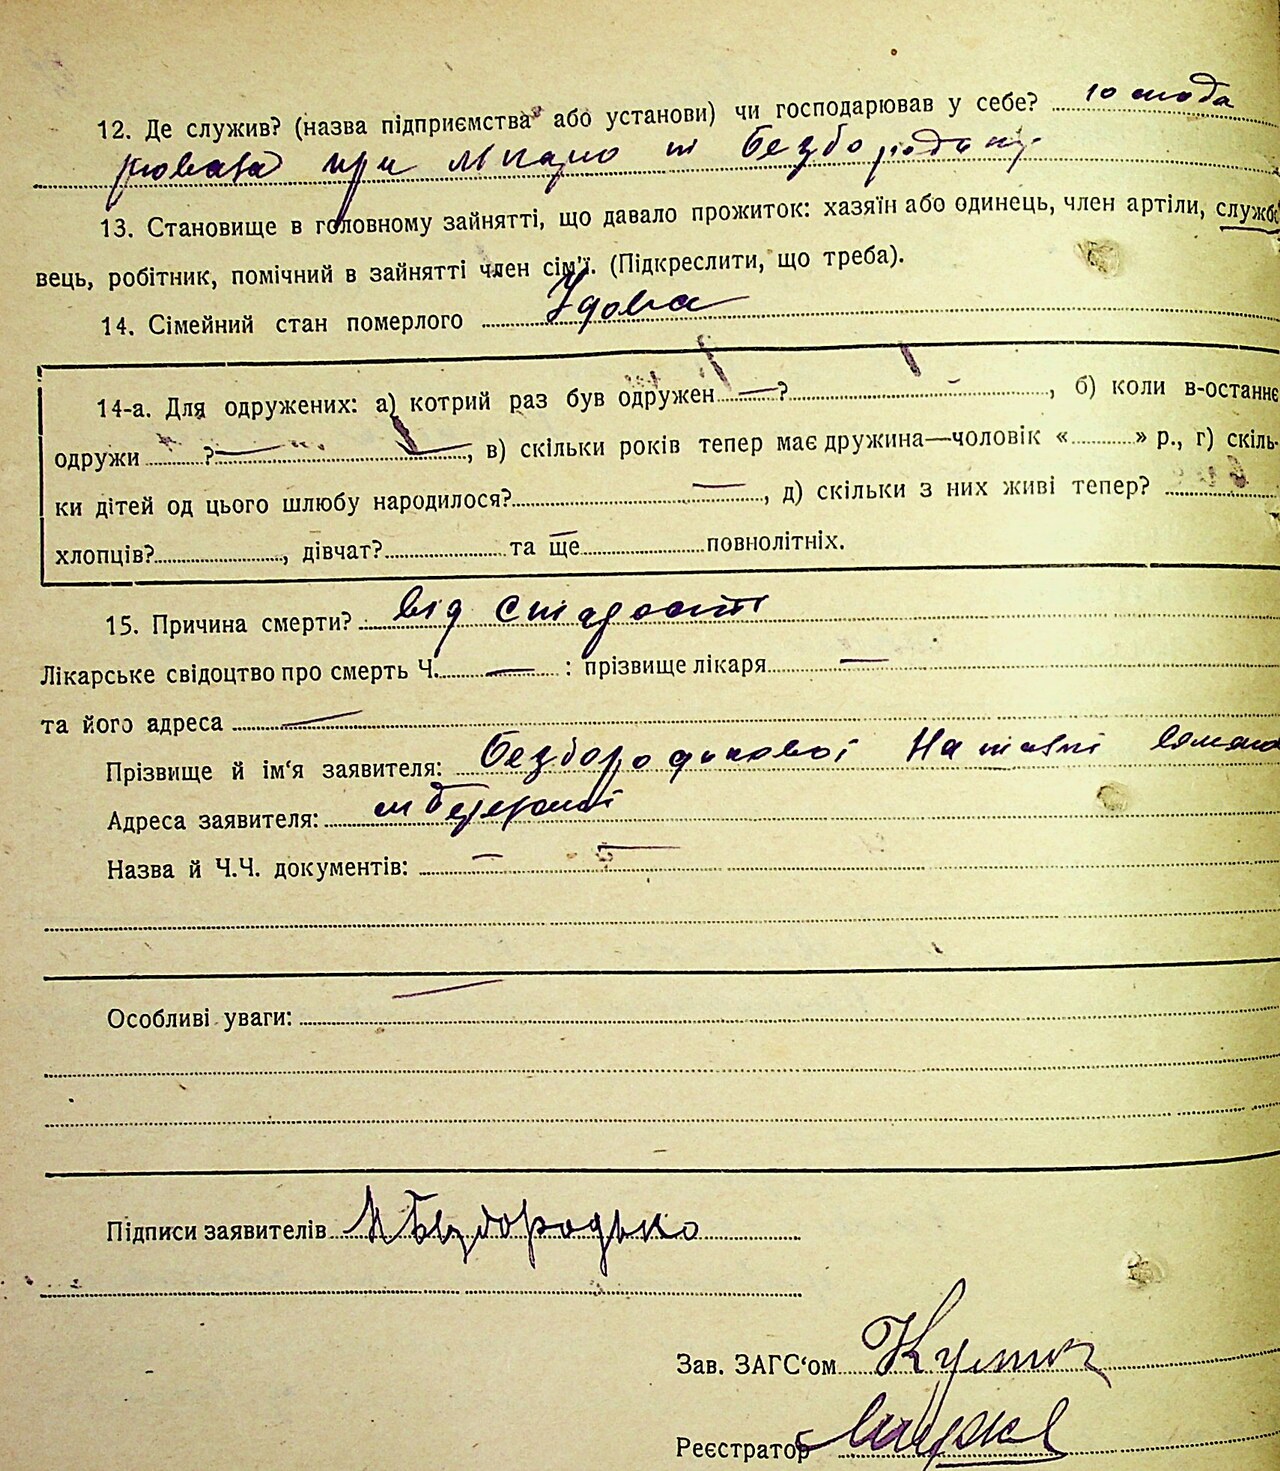 12. Де служив? (назва підприємства або установи) чи господарював у себе?
при
13. Становище в головному зайнятті, що давало прожиток: хазяїн або одинець, член артіли, службо
вець, робітник, помічний в зайнятті член сім'ї. (Підкреслити, що треба).
14. Сімейний стан померлого Удова
14-а. Для одружених: а) котрий раз був одружен — ?, б) коли в-останнє
одружи ? —, в) скільки років тепер має дружина—чоловік « » р., г) скіль-
ки дітей од цього шлюбу народилося? —, д) скільки з них живі тепер?
хлопців?, дівчат? та ще — повнолітніх.
15. Причина смерти? від старости
Лікарське свідоцтво про смерть Ч. — : прізвище лікаря —
та його адреса —
Прізвище й ім'я заявителя: Безбородькової Наталі
Адреса заявителя: м
Назва й Ч.Ч. документів: — —
Особливі уваги: —
Підписи заявителів Н Безбородько
Зав. ЗАГС'ом
Реєстратор